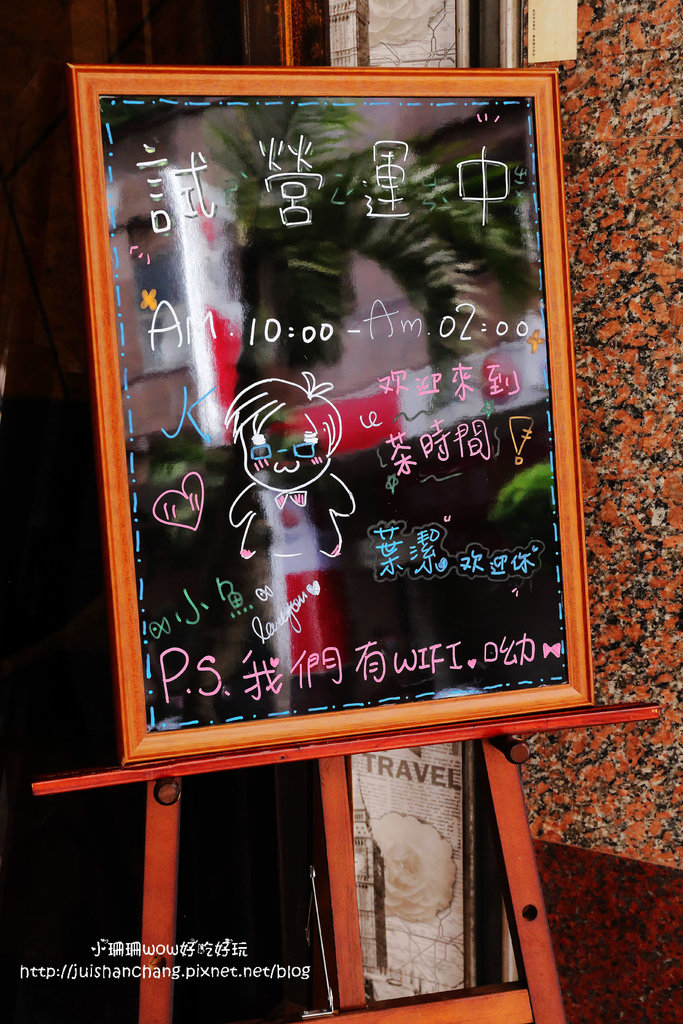 試營運中
AM.10:00-Am.02:00
JK
欢迎來到
茶時間!
葉潔 欢迎你
小魚
love you
P.S.我們有WIFI.呦
TRAVEL
小珊珊wow好吃好玩
http://juishanchang.pixnet.net/blog